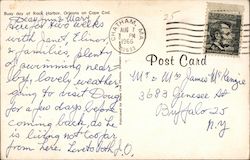 Busy day at Rock Harbor, Orleans on Cape Cod.
Dear Jim & Mary
Here for two weeks
with Janet, Elinor
& families, plenty
of swimming near
by, lovely weather,
going to visit Doug
for a few days before
coming back, as he
is living not too far
from here. Love to both
CHATHAM, MA
AUG 7
PM
1966
Post Card
Mr & Mrs James McKenzie
3683 Genesee St
Buffalo 25
N.Y